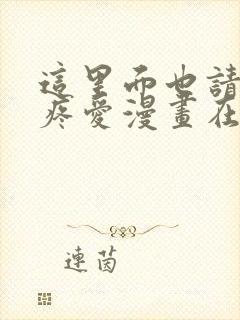 這里而也請
疼愛漫畫在
連茵